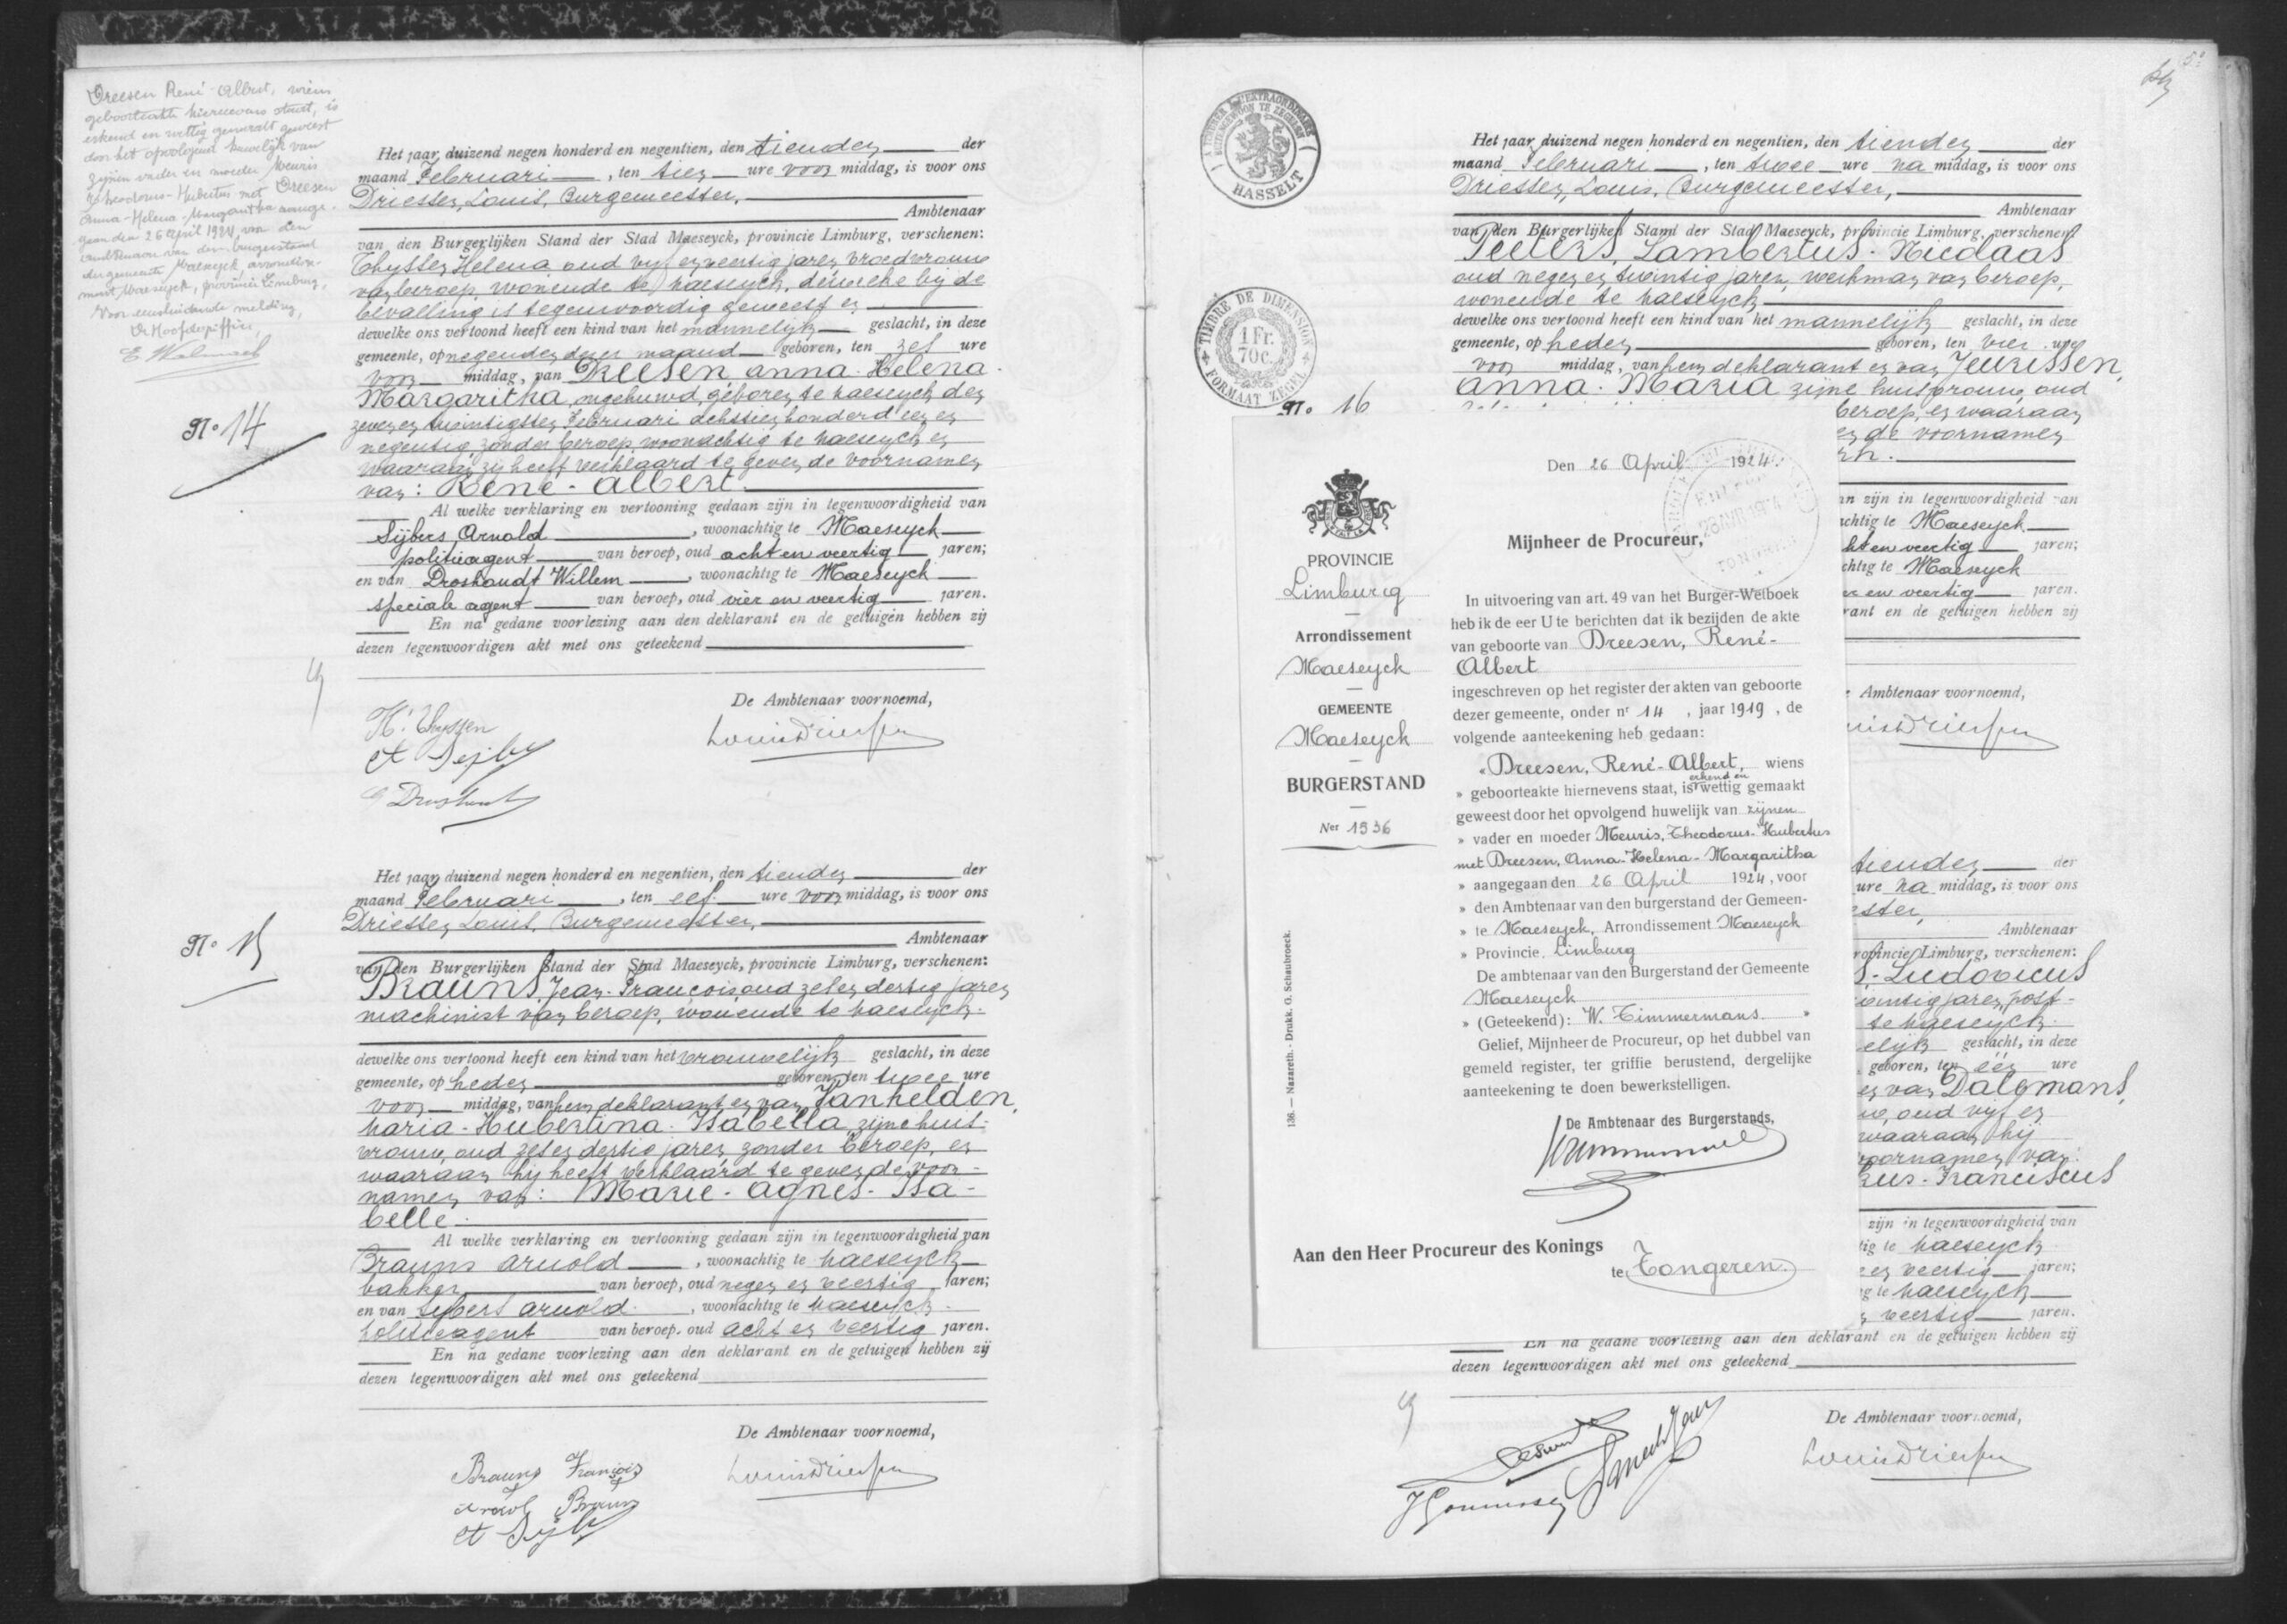 Dreesen René-Albert, wiens
geboorteakte hiernevens staat, is
erkend en wettig gemaakt geweest
door het opvolgend huwelijk van
zijnen vader en moeder Meuris
Theodorus-Hubertus met Dreesen
Anna-Helena-Margaritha aange-
gaan den 26 April 1924, voor den
ambtenaar van den burgerstand
der gemeente Maeseyck, arrondisse-
ment Maeseyck, provincie Limburg,
Voor eensluidende melding,
De Hoofdgriffier,
No 14
Het jaar duizend negen honderd en negentien, den tienden der
maand Februari, ten tien ure voor middag, is voor ons
Driessen, Louis, Burgemeester,
Ambtenaar
van den Burgerlijken Stand der Stad Maeseyck, provincie Limburg, verschenen:
Thyssen Helena oud vyf en veertig jaren vroedvrouw
van beroep, wonende te Maeseyck, dewelke bij de
bevalling is tegenwoordig geweest en
dewelke ons vertoond heeft een kind van het mannelijk geslacht, in deze
gemeente, op negenden dezer maand geboren, ten zes ure
voor middag, van Dreesen Anna-Helena-
Margaritha, ongehuwd, geboren te Maeseyck den
zeven en twintigsten Februari achttien honderd een en
negentig, zonder beroep, woonachtig te Maeseyck en
waaraan zij heeft verklaard te geven de voornamen
van: René-Albert.
Al welke verklaring en vertooning gedaan zijn in tegenwoordigheid van
Sijbers, Arnold, woonachtig te Maeseyck
politieagent van beroep, oud acht en veertig jaren;
en van Droshoudt Willem, woonachtig te Maeseyck
speciale agent van beroep, oud vier en veertig jaren.
En na gedane voorlezing aan den deklarant en de getuigen hebben zij
dezen tegenwoordigen akt met ons geteekend
De Ambtenaar voornoemd,
H. Thyssen
Louis Driessen
No 15
Het jaar duizend negen honderd en negentien, den tienden der
maand Februari, ten elf ure voor middag, is voor ons
Driessen, Louis, Burgemeester,
Ambtenaar
van den Burgerlijken Stand der Stad Maeseyck, provincie Limburg, verschenen:
Brauns, Jean-François oud zes en dertig jaren
machinist van beroep, wonende te Maeseyck.
dewelke ons vertoond heeft een kind van het vrouwelijk geslacht, in deze
gemeente, op heden geboren, ten twee ure
voor middag, van hem deklarant en van Vanhelden,
Maria-Hubertina-Isabella, zijne huis-
vrouw, oud zes en dertig jaren zonder beroep, en
waaraan hij heeft verklaard te geven de voor-
namen van: Marie-Agnes-Isa-
belle.
Al welke verklaring en vertooning gedaan zijn in tegenwoordigheid van
Brauns Arnold, woonachtig te Maeseyck
bakker van beroep, oud negen en veertig jaren;
en van Sijbers Arnold, woonachtig te Maeseyck
politieagent van beroep, oud acht en veertig jaren.
En na gedane voorlezing aan den deklarant en de getuigen hebben zij
dezen tegenwoordigen akt met ons geteekend
De Ambtenaar voornoemd,
Brauns François
Louis Driessen
Arnold Brauns
HASSELT
TIMBRE DE DIMENSION
1 Fr.
70 c.
FORMAAT ZEGEL
No 16
Het jaar duizend negen honderd en negentien, den tienden der
maand Februari, ten twee ure na middag, is voor ons
Driessen, Louis, Burgemeester,
Ambtenaar
van den Burgerlijken Stand der Stad Maeseyck, provincie Limburg, verschenen:
Peeters, Lambertus-Nicolaas
oud negen en twintig jaren, werkman van beroep,
wonende te Maeseyck
dewelke ons vertoond heeft een kind van het mannelijk geslacht, in deze
gemeente, op heden geboren, ten vier ure
voor middag, van hem deklarant en van Jeurissen,
Anna-Maria zijne huisvrouw, oud
beroep, en waaraan
en de voornamen
an zijn in tegenwoordigheid van
achtig te Maeseyck
ht en veertig jaren;
chtig te Maeseyck
er en veertig jaren.
rant en de getuigen hebben zij
Ambtenaar voornoemd,
PROVINCIE
Limburg
Arrondissement
Maeseyck
GEMEENTE
Maeseyck
BURGERSTAND
Ner 1936
136. — Nazareth. - Drukk. G. Schaubroeck.
Den 26 April 1924.
Mijnheer de Procureur,
In uitvoering van art. 49 van het Burger-Wetboek
heb ik de eer U te berichten dat ik bezijden de akte
van geboorte van Dreesen, René-
Albert
ingeschreven op het register der akten van geboorte
dezer gemeente, onder nr 14, jaar 1919, de
volgende aanteekening heb gedaan:
« Dreesen, René-Albert, wiens
erkend en
» geboorteakte hiernevens staat, is wettig gemaakt
geweest door het opvolgend huwelijk van zijnen
» vader en moeder Meuris, Theodorus-Hubertus
met Dreesen, Anna-Helena-Margaritha
» aangegaan den 26 April 1924, voor
» den Ambtenaar van den burgerstand der Gemeen-
» te Maeseyck, Arrondissement Maeseyck
» Provincie Limburg
De ambtenaar van den Burgerstand der Gemeente
Maeseyck
» (Geteekend): W. Timmermans »
Gelief, Mijnheer de Procureur, op het dubbel van
gemeld register, ter griffie berustend, dergelijke
aanteekening te doen bewerkstelligen.
De Ambtenaar des Burgerstands,
Aan den Heer Procureur des Konings
te Tongeren.
tienden der
ure na middag, is voor ons
ester,
Ambtenaar
rovincie Limburg, verschenen:
s-Ludovicus
wintig jaren, post-
te Maeseyck.
elijk geslacht, in deze
geboren, ten één ure
en van Dalemans,
oud vijf en
waaraan hij
voornamen van:
rus-Franciscus
zijn in tegenwoordigheid van
tig te Maeseyck
en veertig jaren;
g te Maeseyck
veertig jaren.
En na gedane voorlezing aan den deklarant en de getuigen hebben zij
dezen tegenwoordigen akt met ons geteekend
De Ambtenaar voornoemd,
Louis Driessen